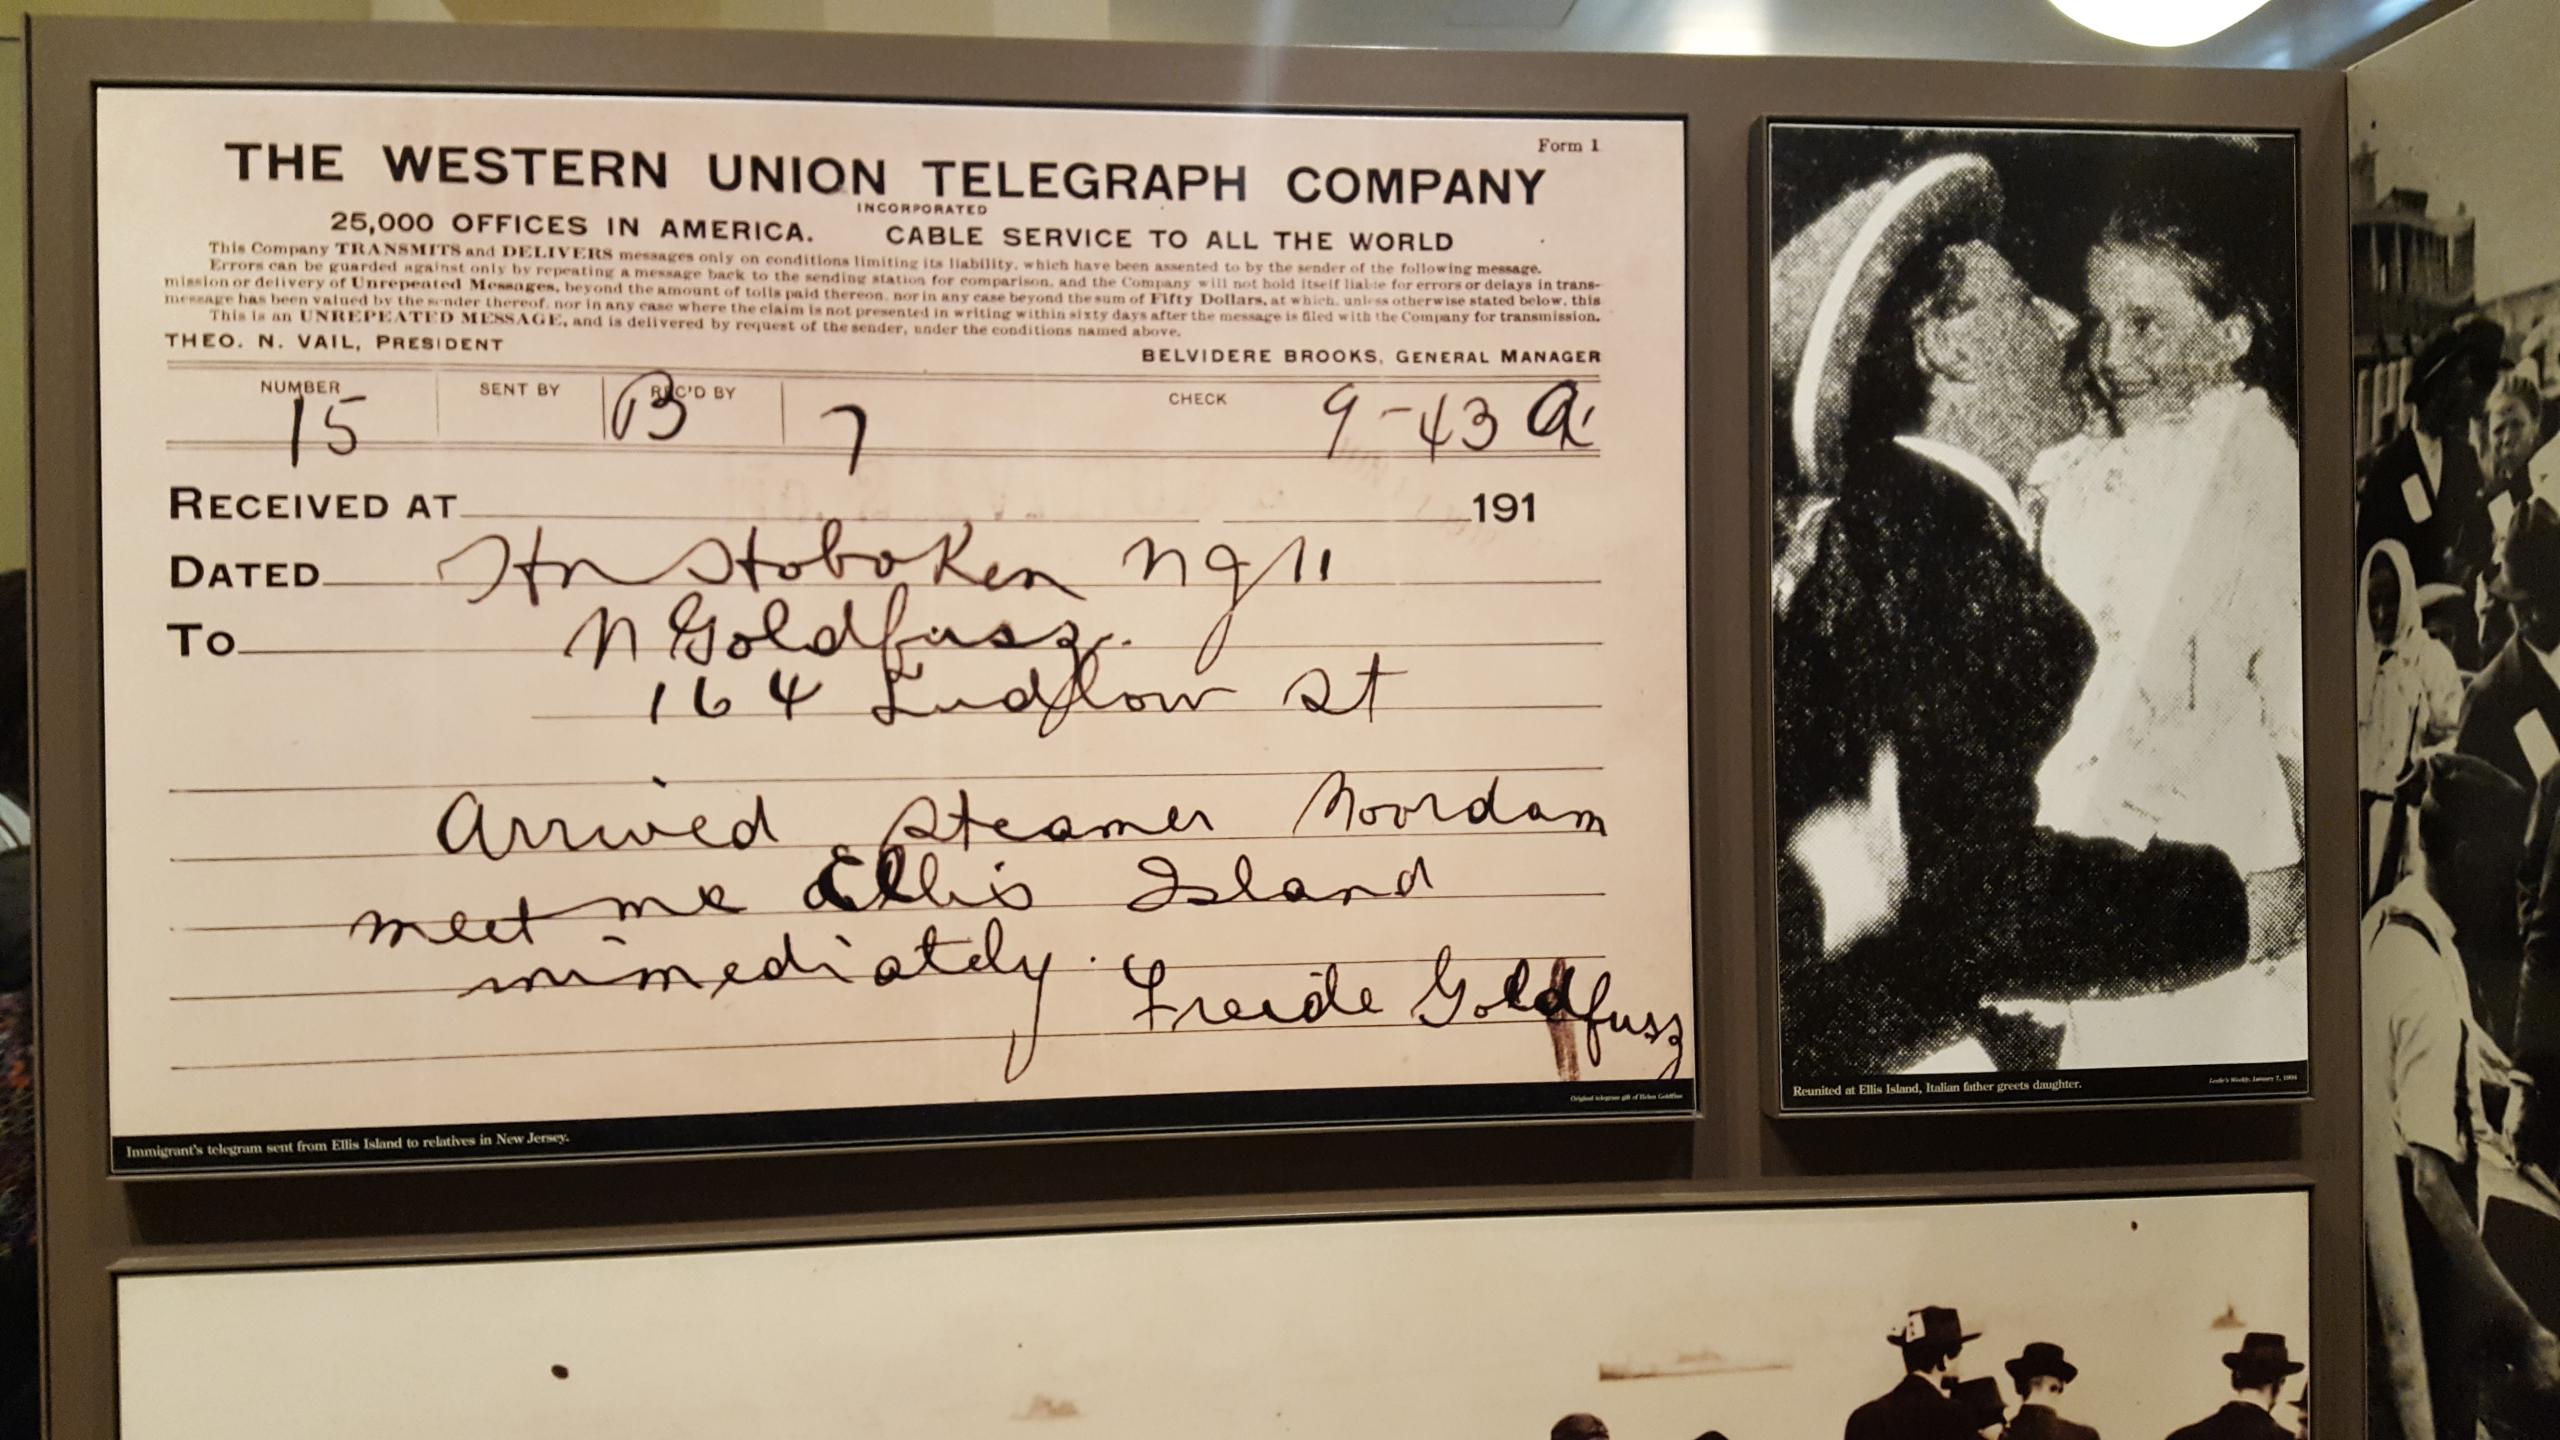 Form 1
THE WESTERN UNION TELEGRAPH COMPANY
INCORPORATED
25,000 OFFICES IN AMERICA. CABLE SERVICE TO ALL THE WORLD
This Company TRANSMITS and DELIVERS messages only on conditions limiting its liability, which have been assented to by the sender of the following message.
Errors can be guarded against only by repeating a message back to the sending station for comparison, and the Company will not hold itself liable for errors or delays in trans-
mission or delivery of Unrepeated Messages, beyond the amount of tolls paid thereon, nor in any case beyond the sum of Fifty Dollars, at which, unless otherwise stated below, this
message has been valued by the sender thereof, nor in any case where the claim is not presented in writing within sixty days after the message is filed with the Company for transmission.
This is an UNREPEATED MESSAGE, and is delivered by request of the sender, under the conditions named above.
THEO. N. VAIL, PRESIDENT BELVIDERE BROOKS, GENERAL MANAGER
NUMBER SENT BY REC'D BY CHECK
15 B 7 9-43 a
RECEIVED AT 191
DATED Hoboken NJ 11
TO N Goldfusz
164 Ludlow St
Arrived Steamer Noordam
meet me Ellis Island
immediately. Freide Goldfusz
Original telegram gift of Helen
Immigrant's telegram sent from Ellis Island to relatives in New Jersey.
Reunited at Ellis Island, Italian father greets daughter.
Leslie's Weekly, January 7,